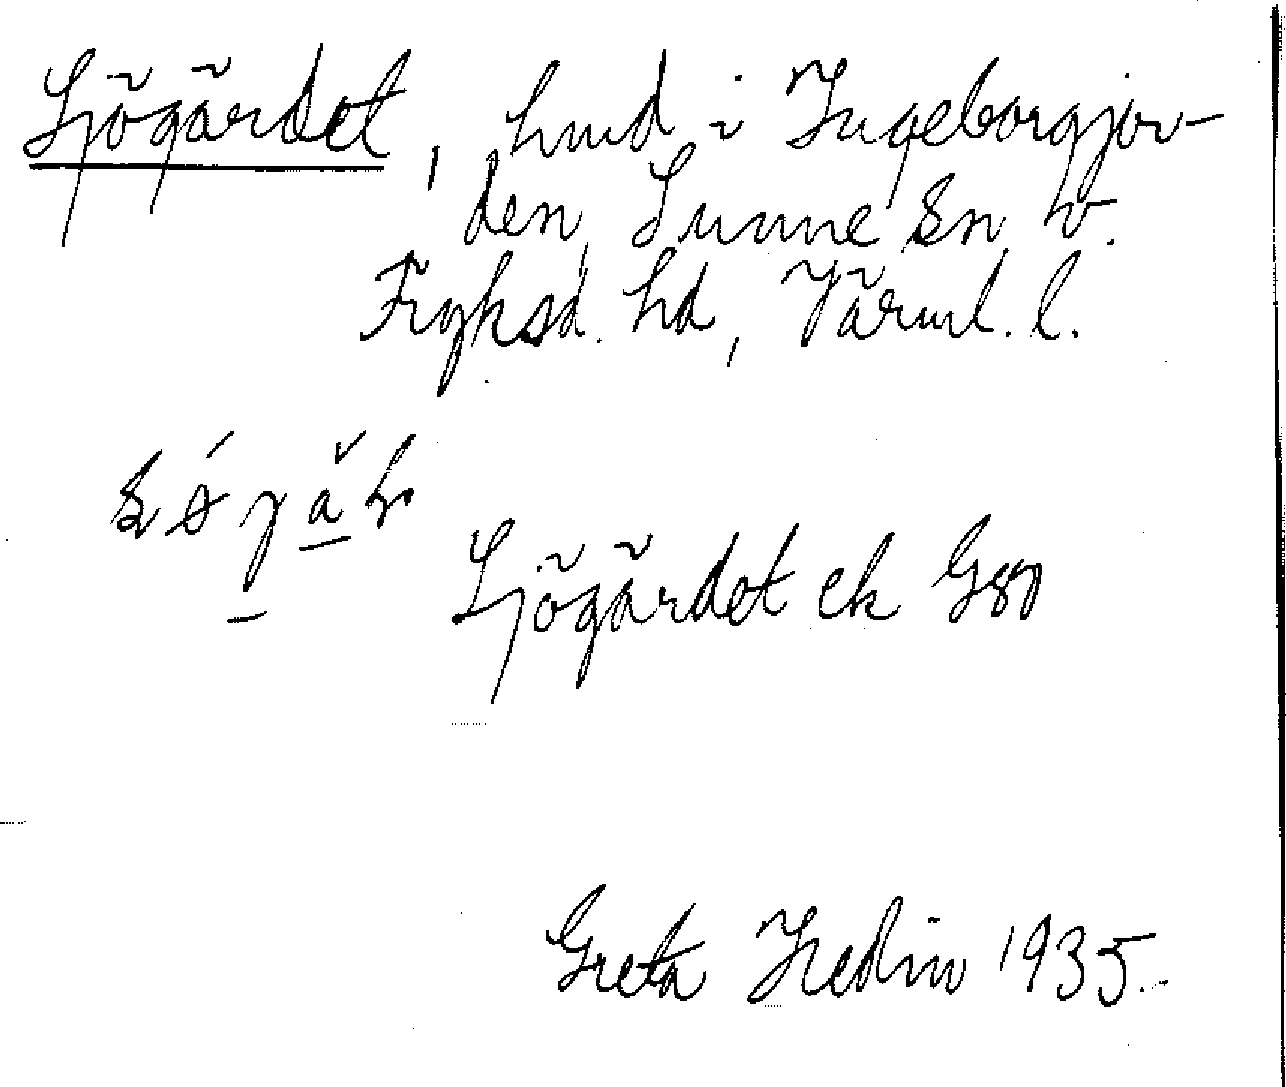 Sjögärdet, hmd i Ingeborgjor-
den, Sunne sn v.
Fryksd. hd, Värml. l.
Sjögärdet ek
Greta Hedin 1935.